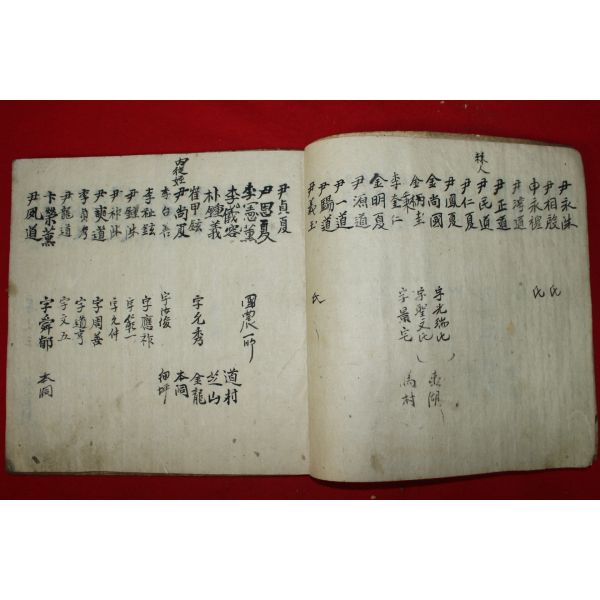 尹永洙 氏
尹相殷 氏
申永權
尹濤道
尹正道
尹民道
林人
尹仁夏
尹鳳夏
金尚國 字光瑞 氏 湖
金 圭 字聖文 氏
李奎仁 字景宅 馬村
金明夏
尹源道
尹一道
尹錫道
尹義玉 氏
尹貞夏
尹思夏
李憲薰 國震一 所
李儀容 道村
朴鍾義 芝山
崔甲鉉 金龍
尹尚夏 字允秀 本洞
李台吾 字汝俊 細坪
李社鉉 字應祚
尹鍾洙 字範一
尹祚洙 字允仲
尹奭道 字周善
李貞秀 字道亨
尹龍道 字文五
卞榮薰 字舜郁 本洞
尹鳳道